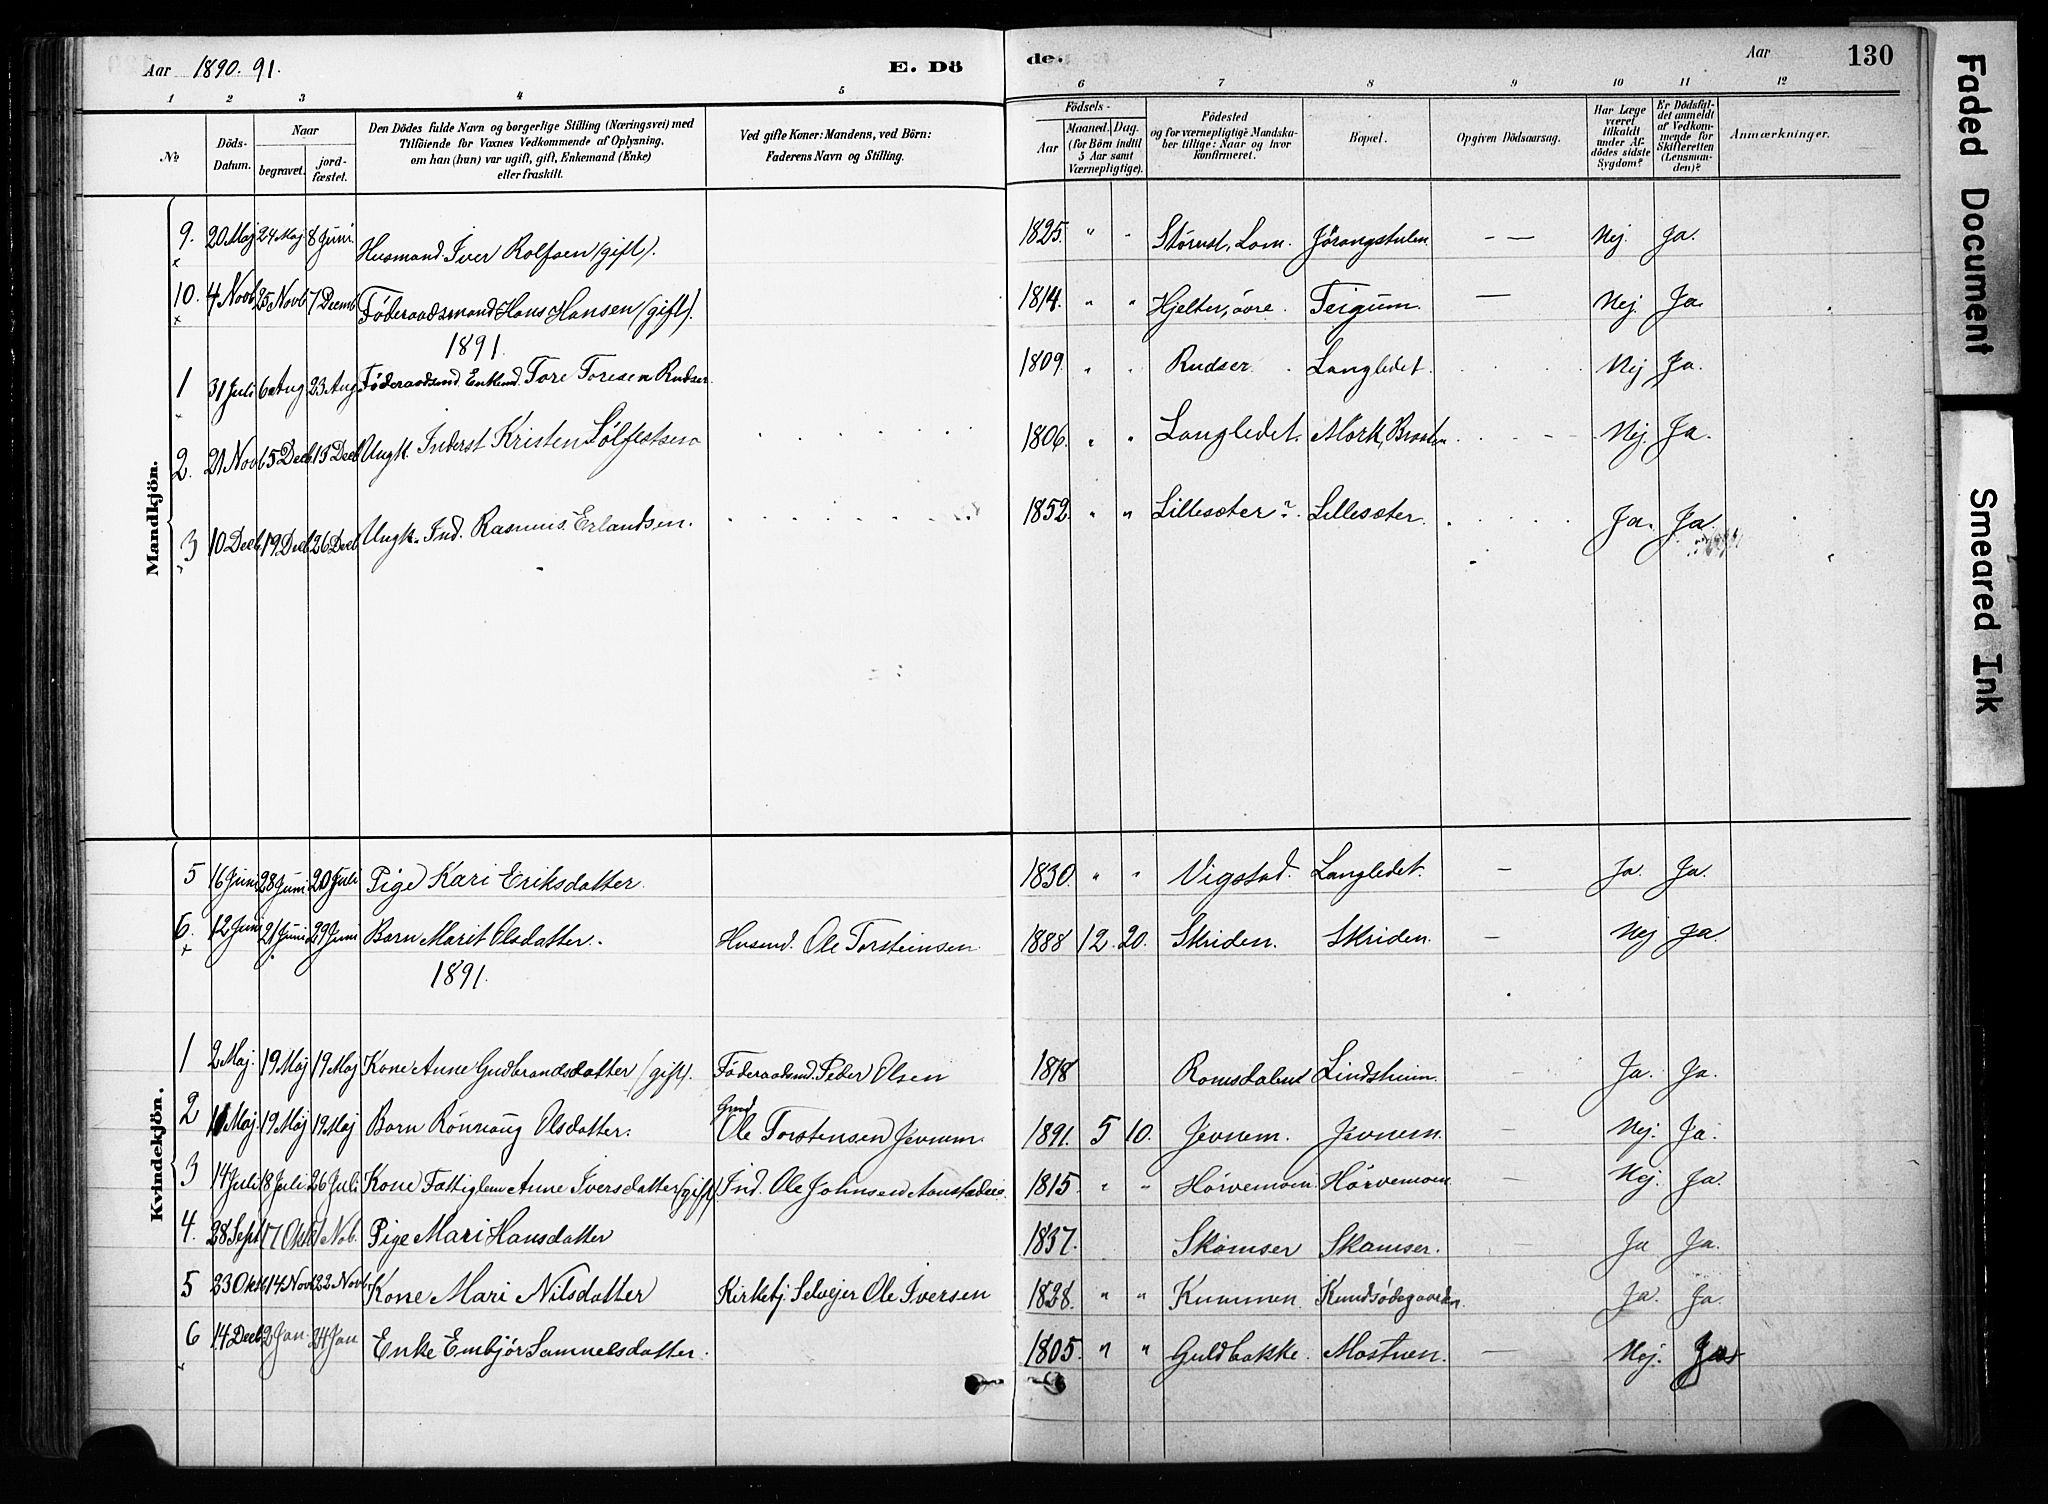 Aar 1890. 91. E. Dö de. Aar 130
1 2 3 4 5 6 7 8 9 10 11 12
№ Döds-Datum. Naar begravet. jord-fæstet. Den Dödes fulde Navn og borgerlige Stilling (Næringsvei) med Tilföiende for Voxnes Vedkommende af Oplysning, om han (hun) var ugift, gift, Enkemand (Enke) eller fraskilt. Ved gifte Koner: Mandens, ved Börn: Faderens Navn og Stilling. Födsels- Aar Maaned. Dag. (for Börn indtil 5 Aar samt Værnepligtige). Födested og for værnepligtige Mandskaber tillige: Naar og hvor konfirmeret. Bopæl. Opgiven Dödsaarsag. Har Læge været tilkaldt under Afdödes sidste Sygdom? Er Dödsfaldet anmeldt af Vedkommende for Skifteretten (Lensmanden)? Anmærkninger.
Mandkjön.
9. 20 Maj 24 Maj 8 Juni. Husmand Iver Rolfsen (gift). 1825. " " Lom. Nej. Ja.
10. 4 Novb 25 Novb 7 Decmb Föderaadsmand Hans Hansen (gift). 1814. " " Hjelter, övre. Teigum. — Nej. Ja.
1891.
1 31 Juli 6 Aug 23 Aug Föderaadsmd. Enkemd. Tore Toresen Rudser. 1809. " " Rudser. Langledet. Nej Ja.
2. 21 Novb 5 Decb 13 Decb Ungk. Inderst Kristen Sölfestsen 1806. " " Langledet. Mörk, Braaten Nej. Ja.
3 10 Decb. 19 Decb 26 Decb Ungk. Ind. Rasmus Erlandsen. 1852. " " Lillesæter? Lillesæter. Ja. Ja.
Kvindekjön.
5 16 Juni 28 Juni 20 Juli Pige Kari Eriksdatter. 1830. " " Vigstad. Langledet. — Ja. Ja.
6. 12 Juni 21 Juni 29 Juni Barn Marit Olsdatter. Husmd. Ole Torsteinsen 1888 12. 20. Skriden. Skriden. — Nej Ja.
1891.
1 2 Maj. 19 Maj 19 Maj Kone Anne Gudbrandsdatter (gift). Föderaadsmd. Peder Olsen 1818 Romsdalen Lindsheim. Ja. Ja.
2 11 Maj 19 Maj 19 Maj Barn Rönnaug Olsdatter. Gmd Ole Torstensen Jevnem. 1891. 5 10. Jevnem. Jevnem. — Nej. Ja.
3 14 Juli 18 Juli 26 Juli Kone Fattiglem Anne Iversdatter (gift) Ind. Ole Johnsen 1815. " " Hörvemoen. Hörvemoen. — Nej. Ja.
4. 28 Sept 17 Okt 1 Nob. Pige Mari Hansdatter 1837. Skamser Skamser. — Ja Ja.
5 23 Okt 14 Novb 22 Novb. Kone Mari Nilsdatter Kirketj. Selvejer Ole Iversen 1828. " " Kummen. Ja. Ja.
6 14 Decb 2 Jan. 24 Jan Enke Embjör Samuelsdatter. 1805. " " Guldbakke. Mostuen. — Nej. Ja
Faded Document
Smeared Ink